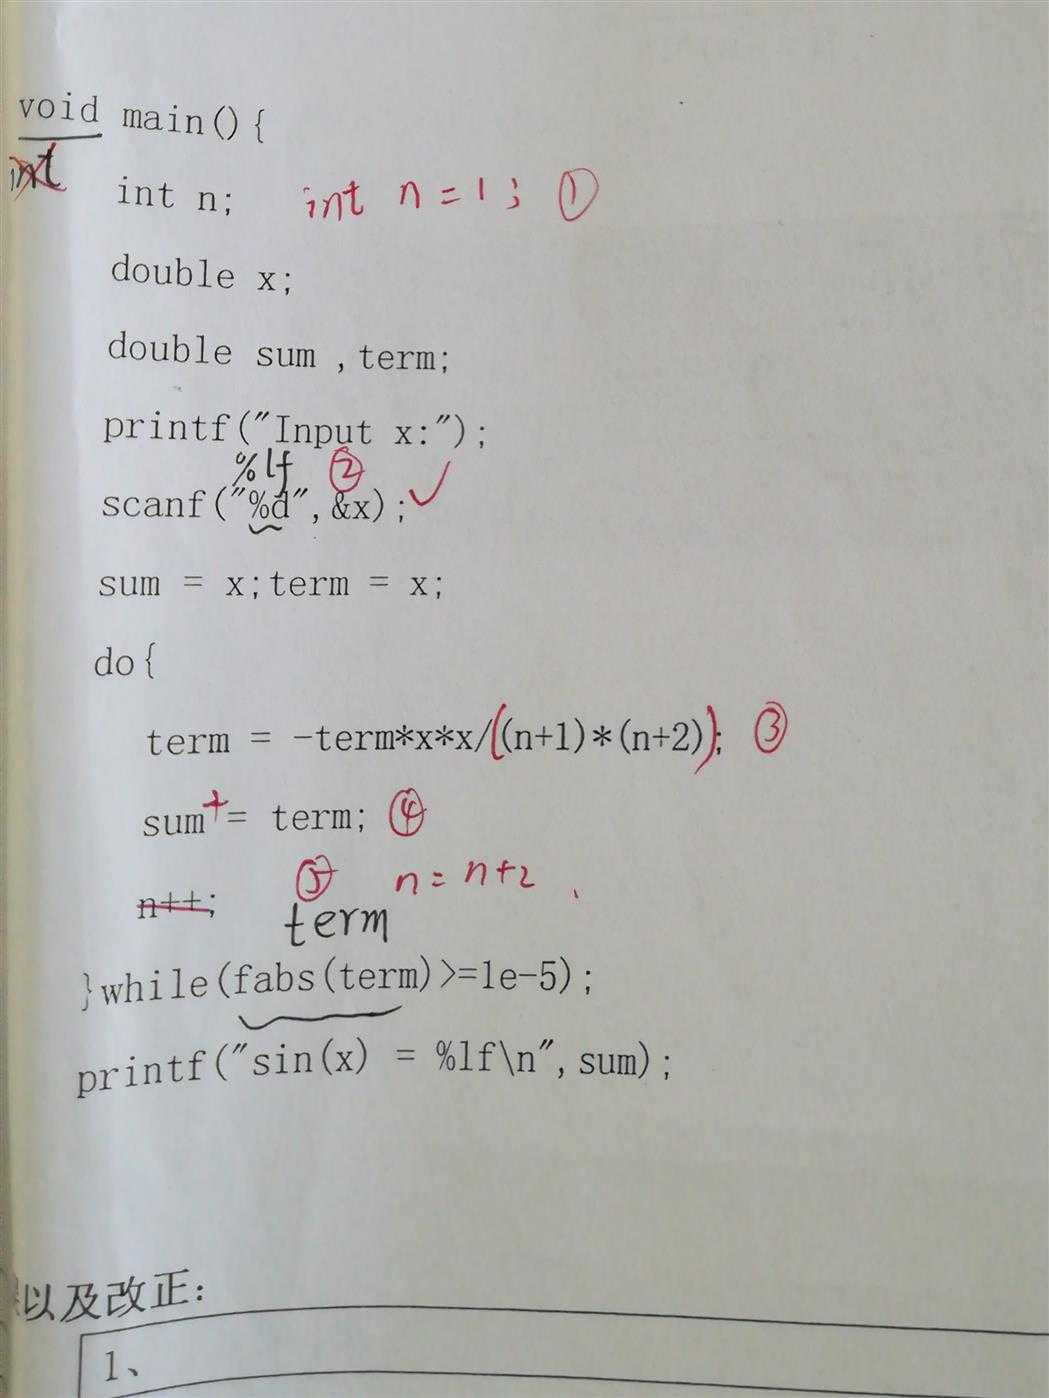 void main(){
int
int n; int n = 1 ; ①
double x;
double sum ,term;
printf("Input x:");
%lf ②
scanf("%d", &x);✓
sum = x;term = x;
do{
term = -term*x*x/((n+1)*(n+2)); ③
sum+= term; ④
⑤ n = n+2
n++;
term
}while(fabs(term)>=1e-5);
printf("sin(x) = %lf\n",sum);
以及改正:
1、